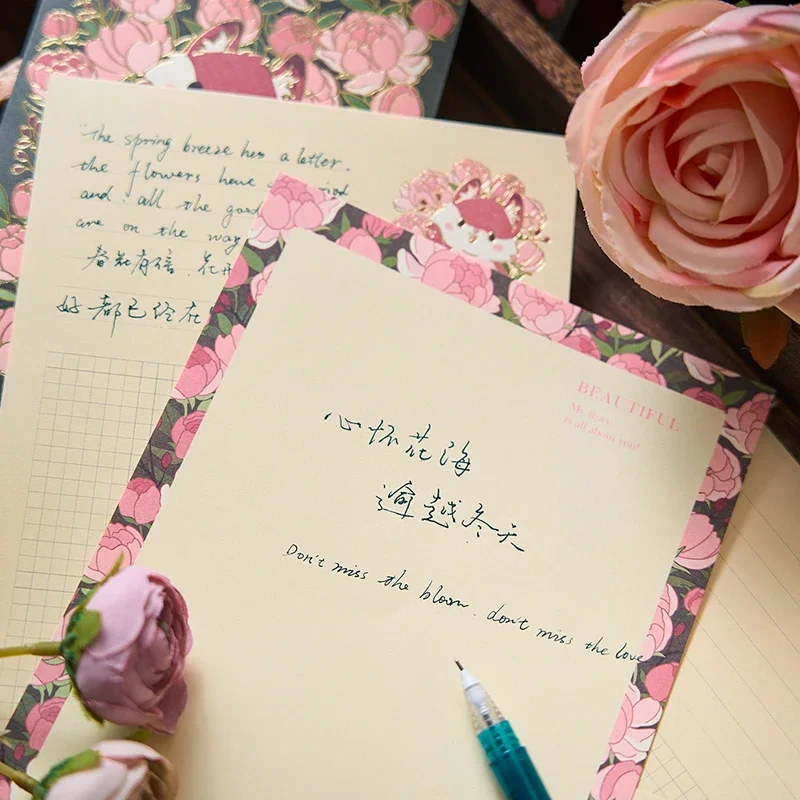 "the spring breeze has a letter.
the flowers have
and all the good
are on the way
春耘有信,花开
好都已经在
BEAUTIFUL
My diary
is all about you!
心怀花海
逾越冬天
Don't miss the bloom. don't miss the love